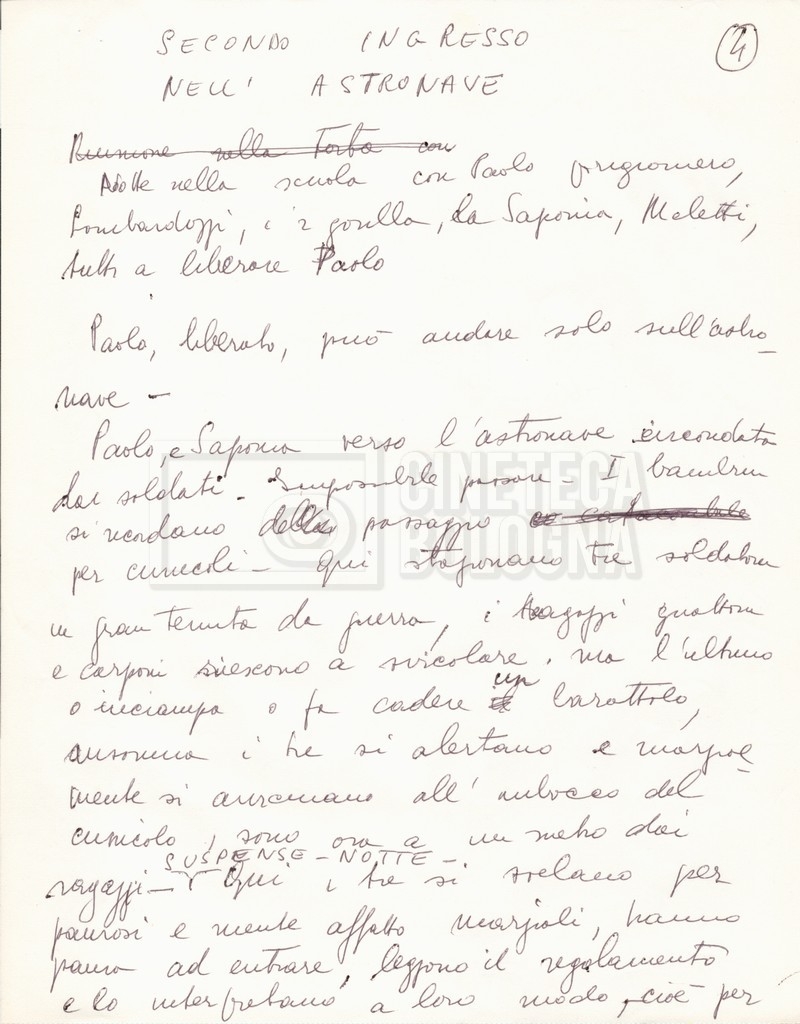 SECONDO INGRESSO
4
NELL' ASTRONAVE
Riunione nella Torba con
Notte nella scuola con Paolo prigioniero,
Lombardozzi, i 2 gorilla, la Saponia, Meletti,
tutti a liberare Paolo
Paolo, liberato, può andare solo sull'astro-
nave -
Paolo, e Saponia verso l'astronave circondata
dai soldati - Impossibile passare - I bambini
si ricordano della passaggio
per cunicoli - Qui stazionano tre soldatoni
in gran tenuta da guerra, i ragazzi quattoni
e carponi riescono a svicolare, ma l'ultimo
o inciampa o fa cadere un barattolo,
insomma i tre si alertano e marzial-
mente si avvicinano all'imbocco del
cunicolo, sono ora a un metro dai
SUSPENSE - NOTTE -
ragazzi - Qui i tre si svelano per
paurosi e mente affatto marziali, hanno
paura ad entrare, leggono il regolamento
e lo interpretano a loro modo, cioè per
CINETECA
BOLOGNA